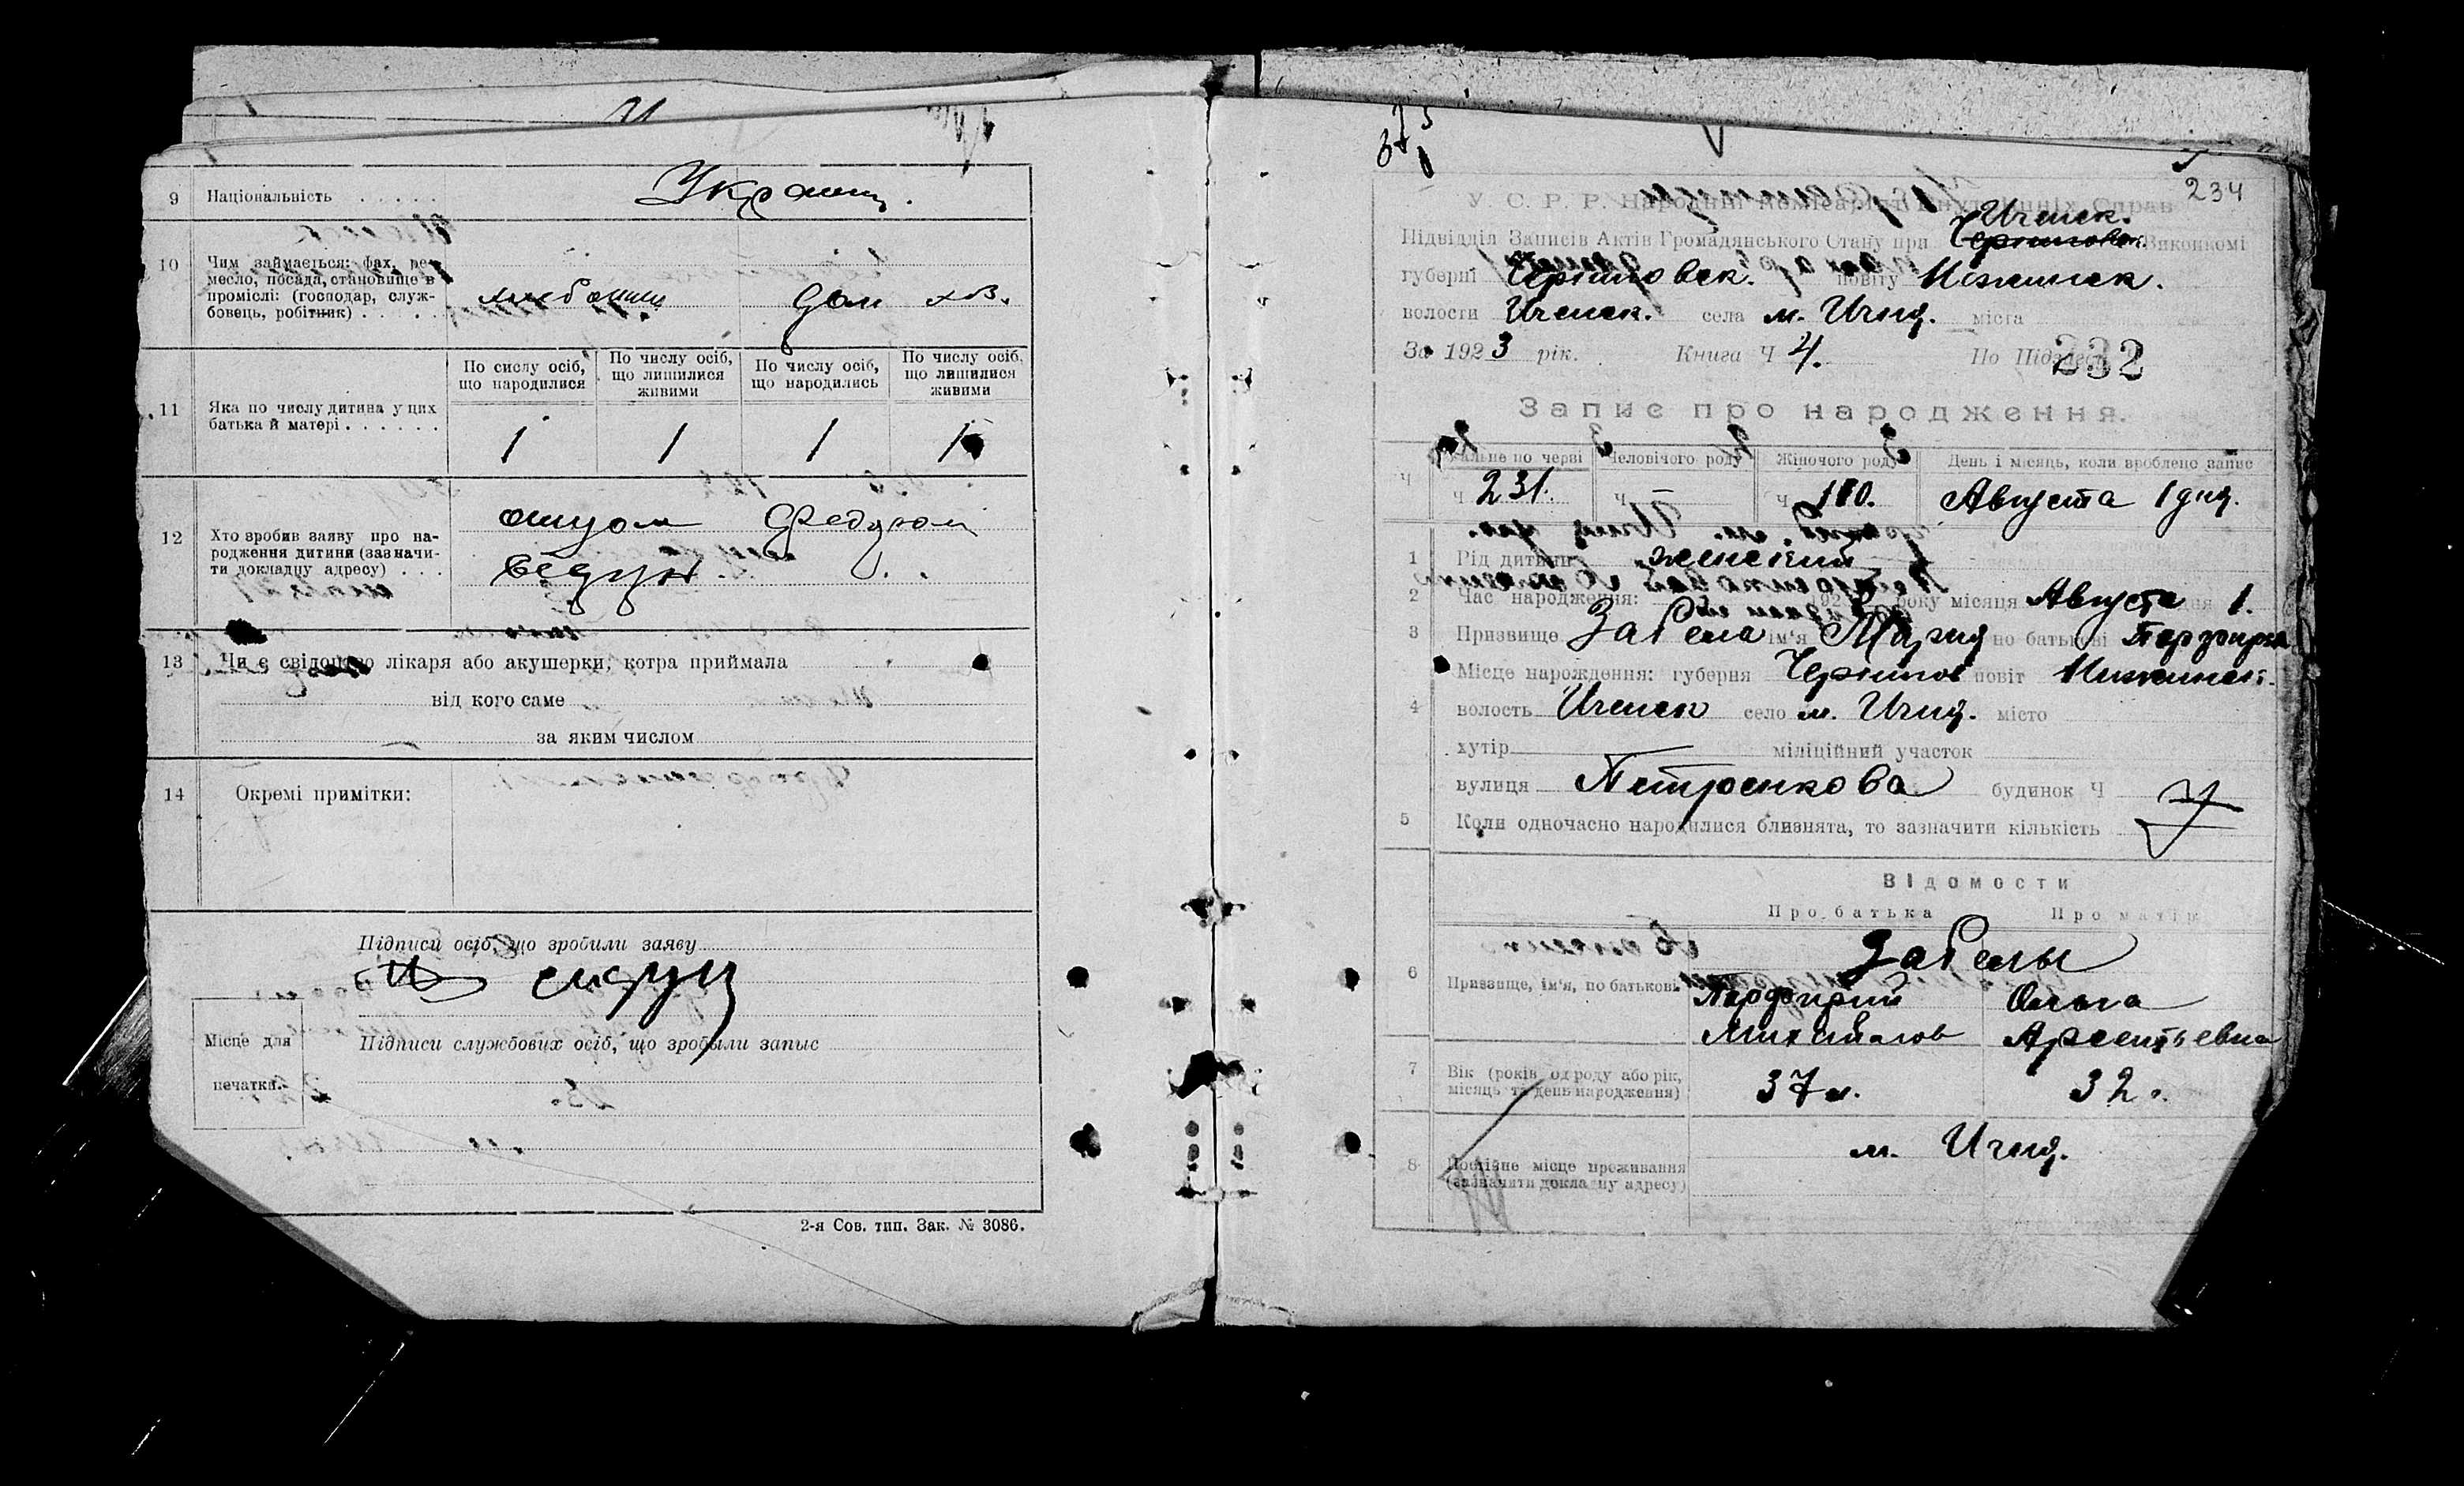 9 Національність . . . . . Украин.
10 Чим займається: фах, ре-
месло, посада, становище в
проміслі: (господар, служ-
бовець, робітник) . . . . хлебопаш. дом хоз.
11 Яка по числу дитина у цих
батька й матері . . . . . .
По сислу осіб, що народилися
По числу осіб, що лишилися живими
По числу осіб, що народились
По числу осіб, що лишилися живими
1 1 1 1
12 Хто зробив заяву про на-
родження дитини (зазначи-
ти докладну адресу) . . .
отцом
13 Чи є свідоцтво лікаря або акушерки, котра приймала
від кого саме
за яким числом
14 Окремі примітки:
Підписи осіб, що зробили заяву
Місце для
печатки.
Підписи службових осіб, що зробыли запыс
2-я Сов. тип. Зак. № 3086.
234
У. С. Р. Р. Народній Комісаріят Внутрішніх Справ
Иченск.
Підвідділ Записів Актів Громадянського Стану при Виконкомі
губерні Черниговск. повіту Нежинск.
волости Иченск. села м. Ичня. міста
За 1923 рік. Книга Ч 4. По Підвідділу 232
Запис про народження.
Ч Загальне по черзі Человічого роду Жіночого роду День і місяць, коли зроблено запис
ч 231. ч — ч 110. Августа 1 дня.
1 Рід дитини женский
2 Час народження: 192 року місяця Августа дня 1.
3 Призвище Забела ім'я Мария по батькові
4 Місце народження: губерня Чернигов повіт Нежинск.
волость Иченск село м. Ичня. місто
хутір міліційний участок
вулиця Петренкова будинок Ч
5 Коли одночасно народилися близнята, то зазначити кількість
Відомости
Про батька Про матір
6 Призвище, ім'я, по батькові
Забелы
Порфирий Ольга
Михайлов Арсентьевна
7 Вік (років од роду або рік,
місяць та день народження) 37 л. 32 л.
8 Постійне місце проживання
(зазначити докладну адресу) м. Ичня.